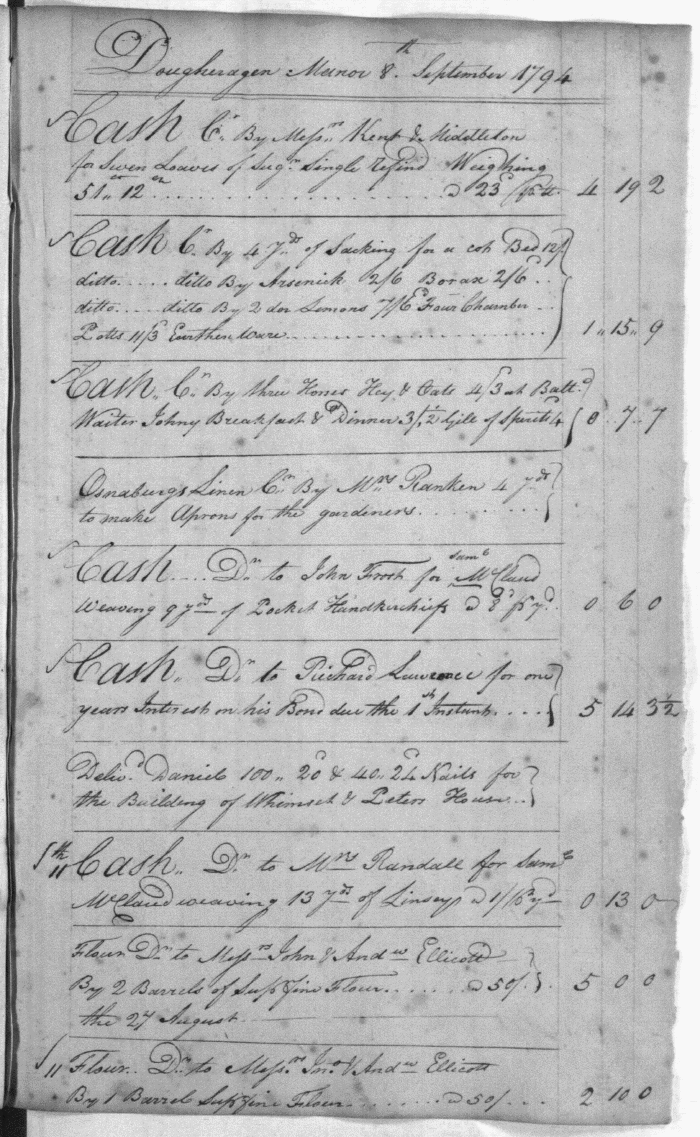 Dougheragen Manor 8.th September 1794
Cash Cr. By Messrs. Kent & Middleton
for Seven Loaves of Sugr. Single Refind Weighing
51 " 12 . . . . . . . . . . . . . . a 23 4 19 2
Cash Cr. By 4 yds of Sacking for a cot Bed 12/
ditto . . . . . ditto By Arsenick 2/6 Borax 2/6 . .
ditto . . . . . ditto By 2 doz Lemons 7/6 Four Chamber . .
Potts 11/3 Earthen ware . . . . . . . . . . . 1 " 15 " 9
Cash. Cr. By three Horses Hey & Oats 4/3 at Balt.
Waiter Johny Breakfast & Dinner 3/, 1/2 Gill of Spirits 4 0 . 7 . 7
Osnaburgs Linen Cr. By Mrs Ranken 4 yds
to make Aprons for the gardiners . . . . . . . .
Cash . . . . Dr. to John Frost for Saml McClaud
Weaving 9 yds of Pocket Handkirchiefs a 8d pr yd. 0 6 0
Cash. Dr. to Richard Lawrence for one
years Interest on his Bond due the 1st Instant . . . . 5 14 3 1/2
Deliv.d Daniel 100 " 20 & 40 " 24 Nails for
the Building of Whimset & Peters House . .
11th Cash. Dr. to Mrs Randall for Saml
McClaud weaving 13 yds of Linseys a 1/ pr yd 0 13 0
Flour Dr. to Messrs John & Andw Ellicott
By 2 Barrels of Supfine Flour . . . . . . a 50/. 5 0 0
the 27 August
11 Flour. Dr. to Messrs. Jno. & Andw Ellicott
By 1 Barrel Supfine Flour . . . . . . . a 50/ . . . 2 10 0